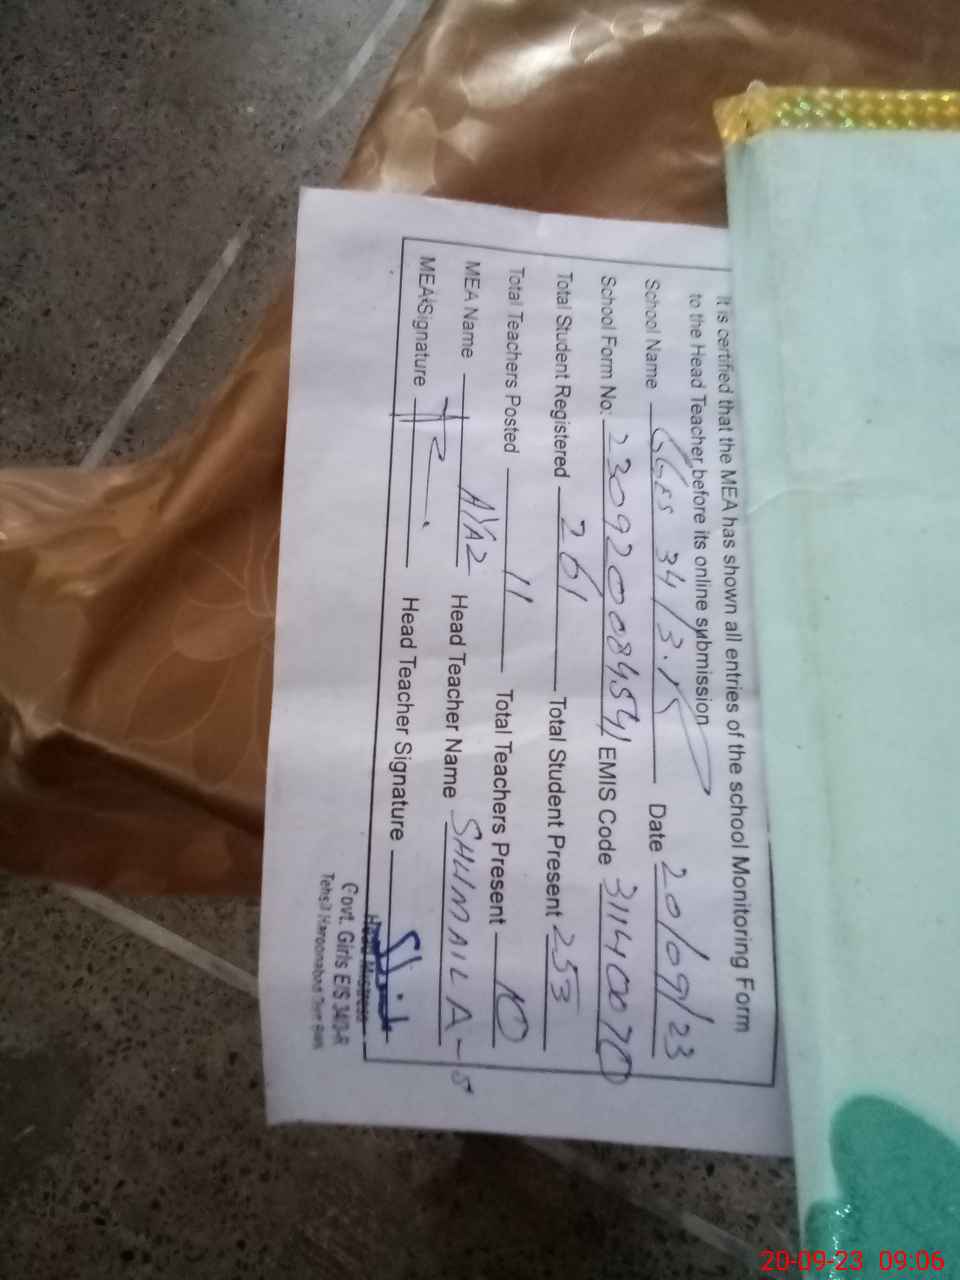 It is certified that the MEA has shown all entries of the school Monitoring Form
to the Head Teacher before its online submission
School Name GGES 34/3.R Date 20/09/23
School Form No: 23092008454 EMIS Code 31140070
Total Student Registered 261 Total Student Present 253
Total Teachers Posted 11 Total Teachers Present 10
MEA Name AYAZ Head Teacher Name SHUMAILA
MEA Signature Head Teacher Signature
Head Mistress
Govt. Girls E/S 34/3-R
Tehsil Haroonabad
20-09-23 09:06